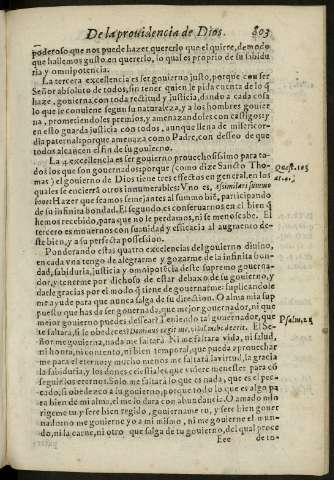 De la prouidencia de Dios. 803
poderoso que nos puede hazer quererlo que el quire, de modo
que hallemos gusto en quererlo, lo qual es proprio de su sabidu
ria y omnipotencia.
La tercera excellencia es ser gouierno justo, porque con ser
Señor absoluto de todos, sin tener quien le pida cuenta de lo q̃
haze, gouierna con toda rectitud y justicia, dando a cada cosa
lo que le conuiene segun su naturaleza, y a los hombres gouier
na, prometiendoles premios, y amenazandoles con castigos: y
en esto guarda justicia con todos, aunque llena de misericor-
dia paternal: porque amenaza como Padre, con desseo de que
todos alcancen el fin de su gouierno.
La 4. excellencia es ser gouierno prouechosissimo para to-
dos los que son gouernados: porque (como dize Sancto Tho- Quæst. 103
mas) el gouierno de Dios tiene tres effectos en general, en los
quales se encierrã otros innumerables: Vno es, assimilari summo
bono: Hazer que seamos semejantes al summo biẽ, participando
de su infinita bondad. El segundo es conseruarnos en el bien q̃
hemos recebido, para que no le perdamos, ni se menoscabe. El
tercero es mouernos con suauidad y efficacia al augmento de-
ste bien, y a su perfecta possession.
Ponderando estas quatro excelencias del gouierno diuino,
en cada vna tengo de alegrarme y gozarme de la infinita bon-
dad, sabiduria, justicia y omnipotẽcia deste supremo gouerna-
dor, y tenerme por dichoso de estar debaxo de su gouierno, y
darle gracias por el modo q̃ tiene de gouernarme: suplicandole
me ayude para que nunca salga de su direction. O alma mia sup
puesto que has de ser gouernada, que mejor gouernador, ni que
mejor gouierno puedes dessear? Teniendo tal gouernador, que
te faltara, si le obedeces? Dominus regit me, nihil mihi deerit. El Se- Psalm. 22
ñor me gouierna, nada me faltara. Ni me faltara vida, ni salud,
ni honra, ni contento, ni bien temporal, que pueda aprouechar
me para el eterno; y mucho menos me faltara la virtud, la gracia
la sabiduria, y los dones celestiales que vuiere menester para cõ
seguir los eternos. Solo me faltara lo que es nada, que es el pec-
cado, si obedezco a su gouierno, porque todo lo que es algo pa
ra bien de mi alma, el me lo dara con abundancia. O amado mio
rigeme tu y sere bien regido, gouiername tu, y sere bien gouer
nado: no me gouierne yo a mi mismo, ni me gouierne el mun-
do, ni la carne, ni otro que salga de tu gouierno, del qual proce
Eee de to-